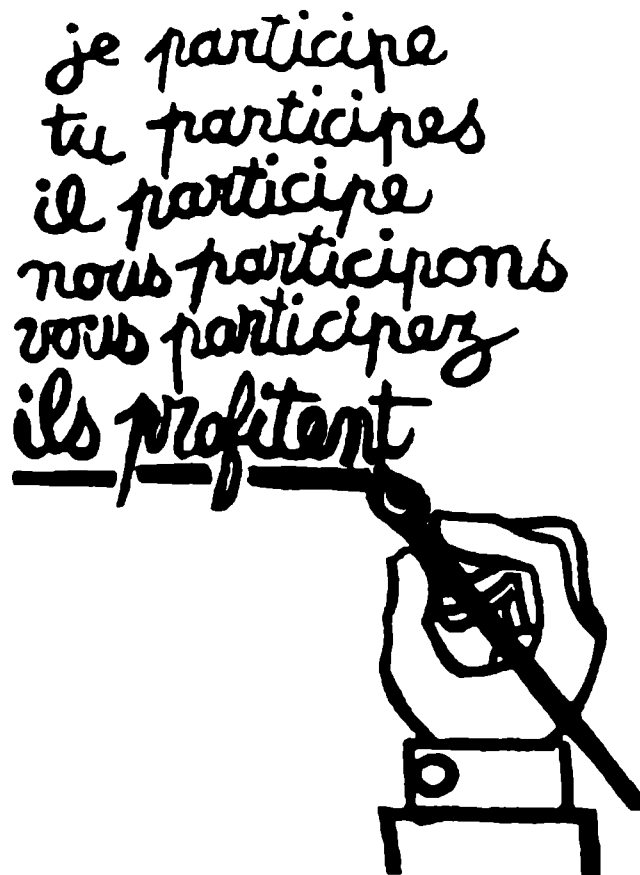 je participe
tu participes
il participe
nous participons
vous participez
ils profitent